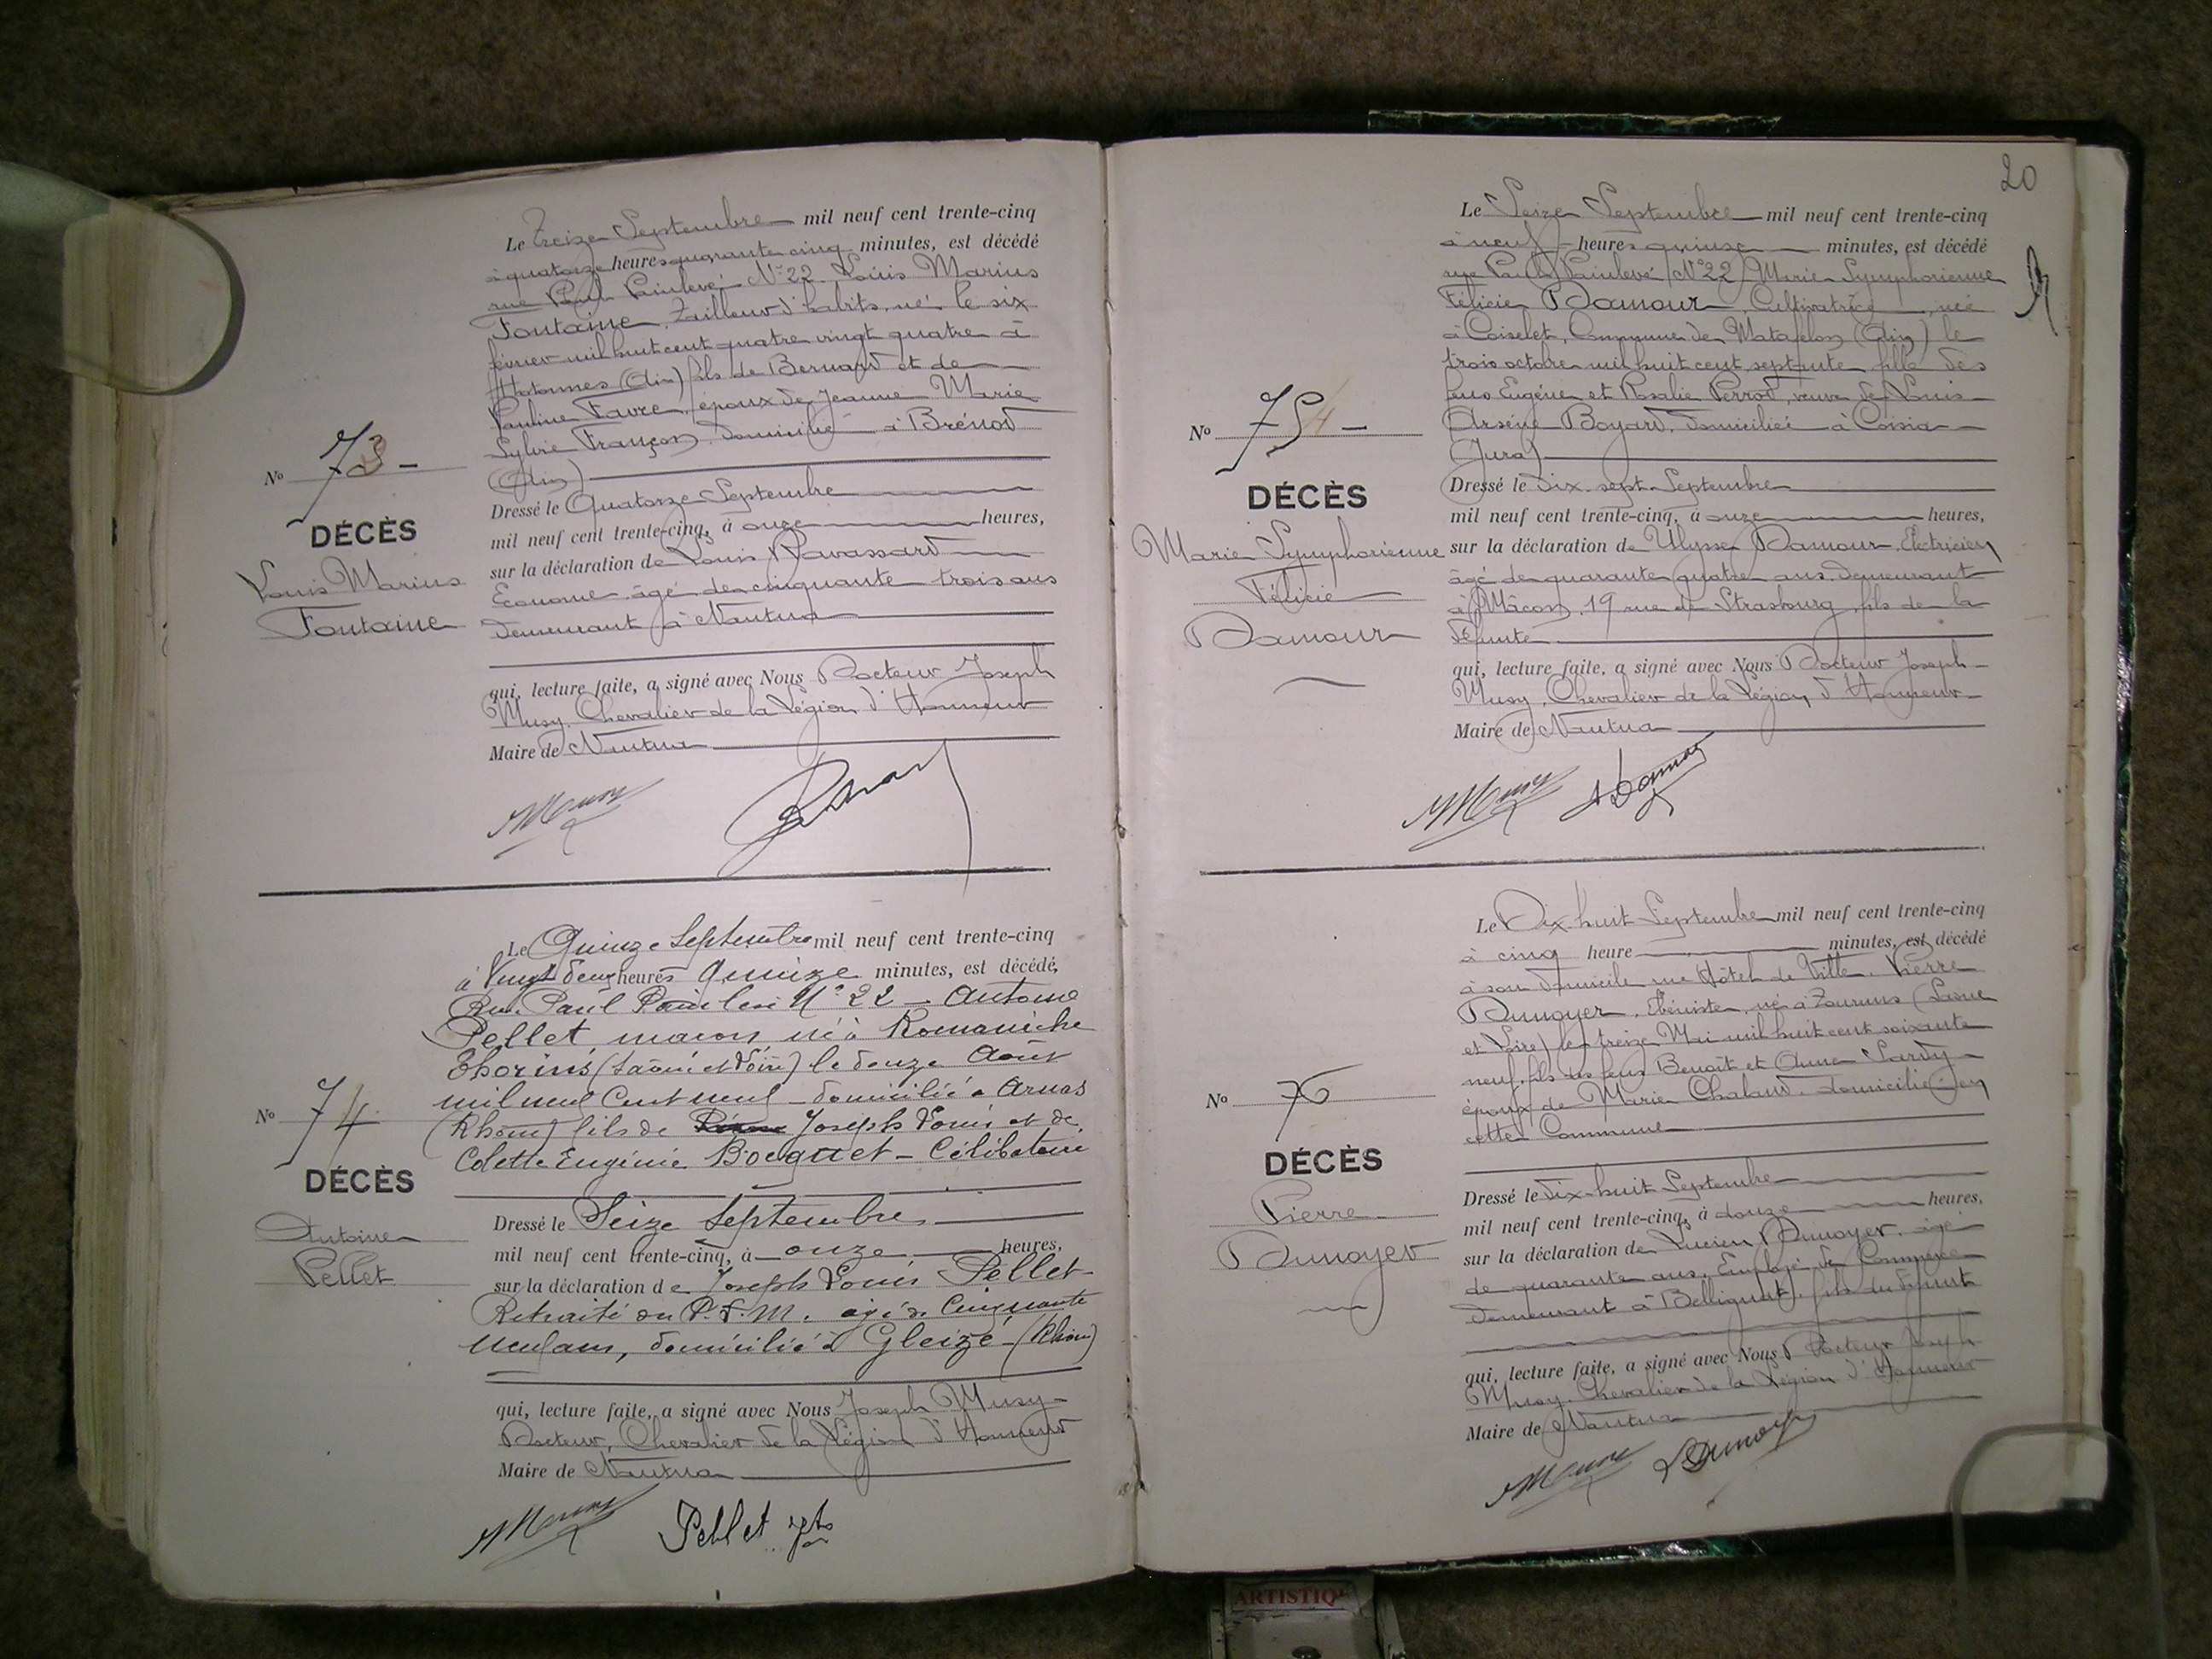 Le Treize Septembre mil neuf cent trente-cinq
à quatorze heures quarante cinq minutes, est décédé
rue Paul Painlevé N° 22 Louis Marius
Fontaine, Tailleur d'habits, né le six
février mil huit cent quatre vingt quatre à
Hotonnes (Ain) fils de Bernard et de
Pauline Favre, époux de Jeanne Marie
Sylvie Françon, domicilié à Brénod
(Ain)
No 73 -
DÉCÈS
Louis Marius
Fontaine
Dressé le Quatorze Septembre
mil neuf cent trente-cinq, à onze heures,
sur la déclaration de Louis Ravassard
Econome, âgé de cinquante trois ans
demeurant à Nantua
qui, lecture faite, a signé avec Nous Docteur Joseph
Musy, Chevalier de la Légion d'Honneur
Maire de Nantua
Le Quinze Septembre mil neuf cent trente-cinq
à Vingt deux heures Quinze minutes, est décédé,
Rue Paul Painlevé N° 22 - Antoine
Pellet maçon né à Romanèche
Thorins (Saône et Loire) le douze Août
mil neuf Cent neuf - domicilié à Arnas
(Rhône) fils de Joseph Louis et de
Colette Eugénie Bocquet - Célibataire
No 74
DÉCÈS
Antoine
Pellet
Dressé le Seize Septembre
mil neuf cent trente-cinq, à onze heures,
sur la déclaration de Joseph Louis Pellet
Retraité du P.L.M. agé de Cinquante
neuf ans, domicilié à Gleizé - (Rhône)
qui, lecture faite, a signé avec Nous Joseph Musy
Docteur, Chevalier de la Légion d'Honneur
Maire de Nantua
Pellet
20
Le Seize Septembre mil neuf cent trente-cinq
à neuf heures quinze minutes, est décédé
rue Paul Painlevé N° 22, Marie Symphorienne
Félicie Damour, Cultivatrice, née
à Coiselet, Commune de Matafelon (Ain) le
trois octobre mil huit cent septante fille des
feus Eugène et Rosalie Perrod, veuve de Louis
Arsène Boyard, domiciliée à Coisia
(Jura)
No 75 -
DÉCÈS
Marie Symphorienne
Félicie
Damour
Dressé le Dix-sept Septembre
mil neuf cent trente-cinq, à onze heures,
sur la déclaration de Ulysse Damour, Electricien
âgé de quarante quatre ans, demeurant
à Mâcon, 19 rue de Strasbourg, fils de la
défunte
qui, lecture faite, a signé avec Nous Docteur Joseph
Musy, Chevalier de la Légion d'Honneur
Maire de Nantua
Le Dix-huit Septembre mil neuf cent trente-cinq
à cinq heure minutes, est décédé
à son domicile rue Hôtel de Ville, Pierre
Dunoyer, Ebéniste, né à Tournus (Saône
et Loire) le treize Mai mil huit cent soixante
neuf, fils des feus Benoît et Anne Sardy
époux de Marie Chaland, domicilié en
cette Commune
No 76
DÉCÈS
Pierre
Dunoyer
Dressé le Dix-huit Septembre
mil neuf cent trente-cinq, à douze heures,
sur la déclaration de Lucien Dunoyer, âgé
de quarante ans, Employé de Commerce
demeurant à Bellignat, fils du défunt
qui, lecture faite, a signé avec Nous Docteur Joseph
Musy, Chevalier de la Légion d'Honneur
Maire de Nantua
ARTISTIQ